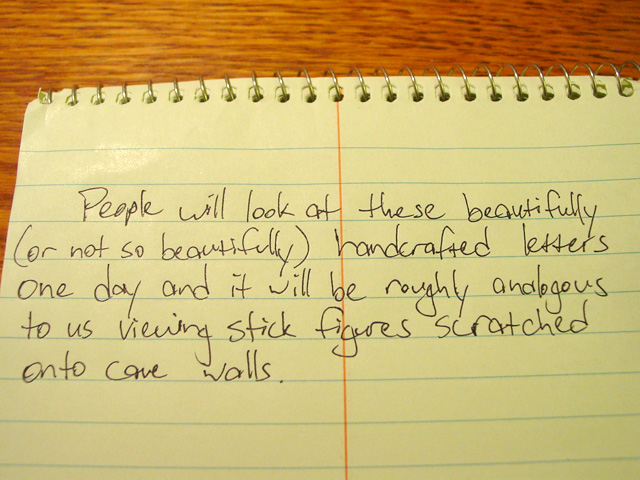 People will look at these beautifully
(or not so beautifully) handcrafted letters
one day and it will be roughly analogous
to us viewing stick figures scratched
onto cave walls.